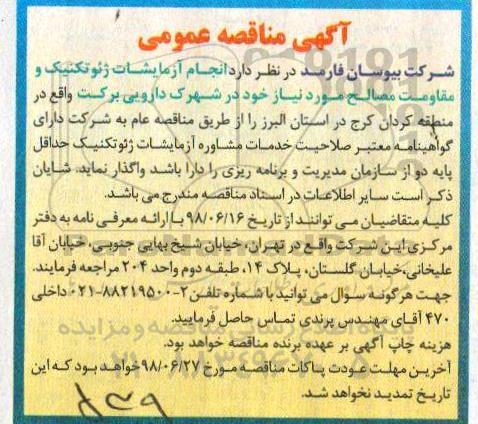 آگهی مناقصه عمومی
شرکت بیوسان فارمد در نظر دارد انجام آزمایشات ژئوتکنیک و
مقاومت مصالح مورد نیاز خود در شهرک دارویی برکت واقع در
منطقه کردان کرج در استان البرز را از طریق مناقصه عام به شرکت دارای
گواهینامه معتبر صلاحیت خدمات مشاوره آزمایشات ژئوتکنیک حداقل
پایه دو از سازمان مدیریت و برنامه ریزی را دارا باشد واگذار نماید. شایان
ذکر است سایر اطلاعات در اسناد مناقصه مندرج می باشد.
کلیه متقاضیان می توانند از تاریخ ۹۸/۰۶/۱۶ با ارائه معرفی نامه به دفتر
مرکزی این شرکت واقع در تهران، خیابان شیخ بهایی جنوبی، خیابان آقا
علیخانی،خیابان گلستان، پلاک ۱۴، طبقه دوم واحد ۲۰۴ مراجعه فرمایند.
جهت هرگونه سوال می توانید با شماره تلفن ۲-۸۸۲۱۹۵۰۰-۰۲۱ داخلی
۴۷۰ آقای مهندس پرندی تماس حاصل فرمایید.
هزینه چاپ آگهی بر عهده برنده مناقصه خواهد بود.
آخرین مهلت عودت پاکات مناقصه مورخ ۹۸/۰۶/۲۷ خواهد بود که این
تاریخ تمدید نخواهد شد.